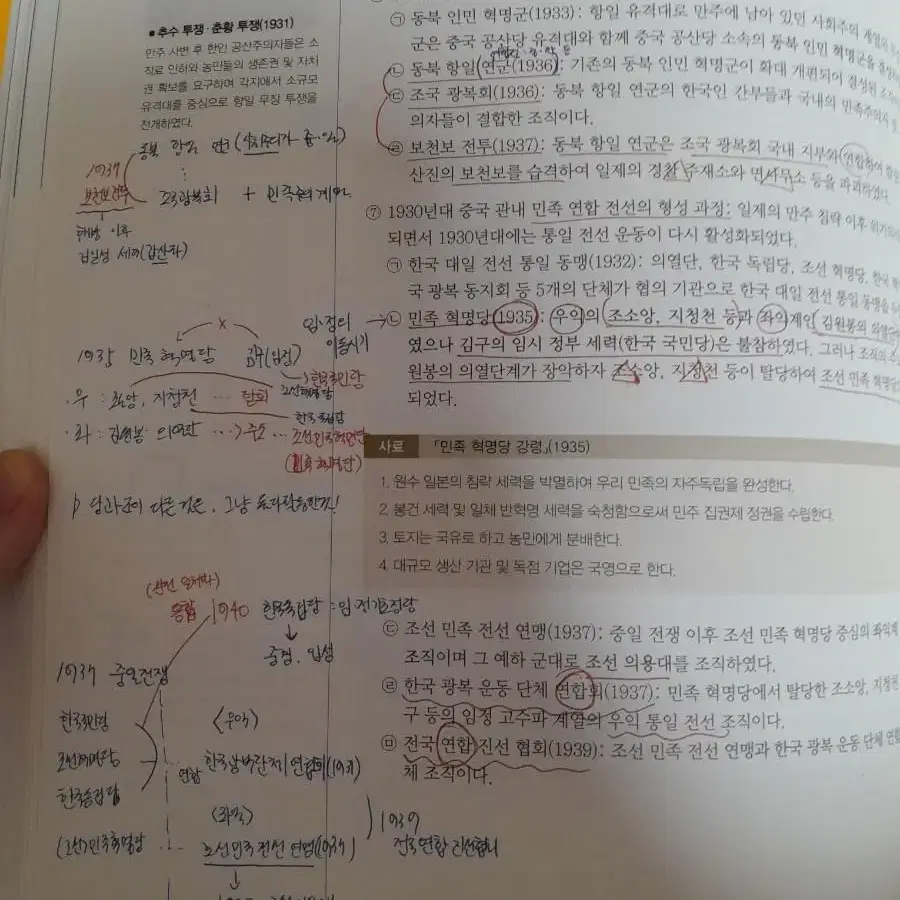 ■ 추수 투쟁·춘황 투쟁(1931)
만주 사변 후 한인 공산주의자들은 소
작료 인하와 농민들의 생존권 및 자치
권 확보를 요구하며 각지에서 소규모
유격대를 중심으로 항일 무장 투쟁을
전개하였다.
동북 항일 연군
1937
보천보전투
조국광복회 +
해방 이후
김일성 세력(갑산파)
1935 민족혁명당 김구(임정)
임·정의
이동시기
한국국민당
·우 : 조소앙, 지청천 … 탈퇴
조선혁명당
한국독립당
·좌 : 김원봉 의열단
조선민족혁명당
(민족혁명당)
1940 한국독립당
중경. 임정
1937 중일전쟁
한국국민당
조선혁명당
한국독립당
(조선)민족혁명당
<우익>
연합
<좌익>
조선민족전선 연맹(1937)
1939
전국연합진선협회
㉠ 동북 인민 혁명군(1933): 항일 유격대로 만주에 남아 있던 사회주의 계열의
군은 중국 공산당 유격대와 함께 중국 공산당 소속의 동북 인민 혁명군을
㉡ 동북 항일 연군(1936): 기존의 동북 인민 혁명군이 확대 개편되어 결성된
㉢ 조국 광복회(1936): 동북 항일 연군의 한국인 간부들과 국내의 민족주의자 및
의자들이 결합한 조직이다.
㉣ 보천보 전투(1937): 동북 항일 연군은 조국 광복회 국내 지부와 연합하여 함
산진의 보천보를 습격하여 일제의 경찰 주재소와 면사무소 등을 파괴하였다.
⑦ 1930년대 중국 관내 민족 연합 전선의 형성 과정: 일제의 만주 침략 이후 위기
되면서 1930년대에는 통일 전선 운동이 다시 활성화되었다.
㉠ 한국 대일 전선 통일 동맹(1932): 의열단, 한국 독립당, 조선 혁명당, 한국
국 광복 동지회 등 5개의 단체가 협의 기관으로 한국 대일 전선 통일 동맹을
㉡ 민족 혁명당(1935): 우익의 조소앙, 지청천 등과 좌익계인 김원봉의 의열단
였으나 김구의 임시 정부 세력(한국 국민당)은 불참하였다. 그러나 조직의 주
원봉의 의열단계가 장악하자 조소앙, 지청천 등이 탈당하여 조선 민족 혁명당
되었다.
사료 「민족 혁명당 강령」(1935)
1. 원수 일본의 침략 세력을 박멸하여 우리 민족의 자주독립을 완성한다.
2. 봉건 세력 및 일체 반혁명 세력을 숙청함으로써 민주 집권제 정권을 수립한다.
3. 토지는 국유로 하고 농민에게 분배한다.
4. 대규모 생산 기관 및 독점 기업은 국영으로 한다.
㉢ 조선 민족 전선 연맹(1937): 중일 전쟁 이후 조선 민족 혁명당 중심의 좌익계
조직이며 그 예하 군대로 조선 의용대를 조직하였다.
㉣ 한국 광복 운동 단체 연합회(1937): 민족 혁명당에서 탈당한 조소앙, 지청천
구 등의 임정 고수파 계열의 우익 통일 전선 조직이다.
㉤ 전국 연합 진선 협회(1939): 조선 민족 전선 연맹과 한국 광복 운동 단체 연합
체 조직이다.